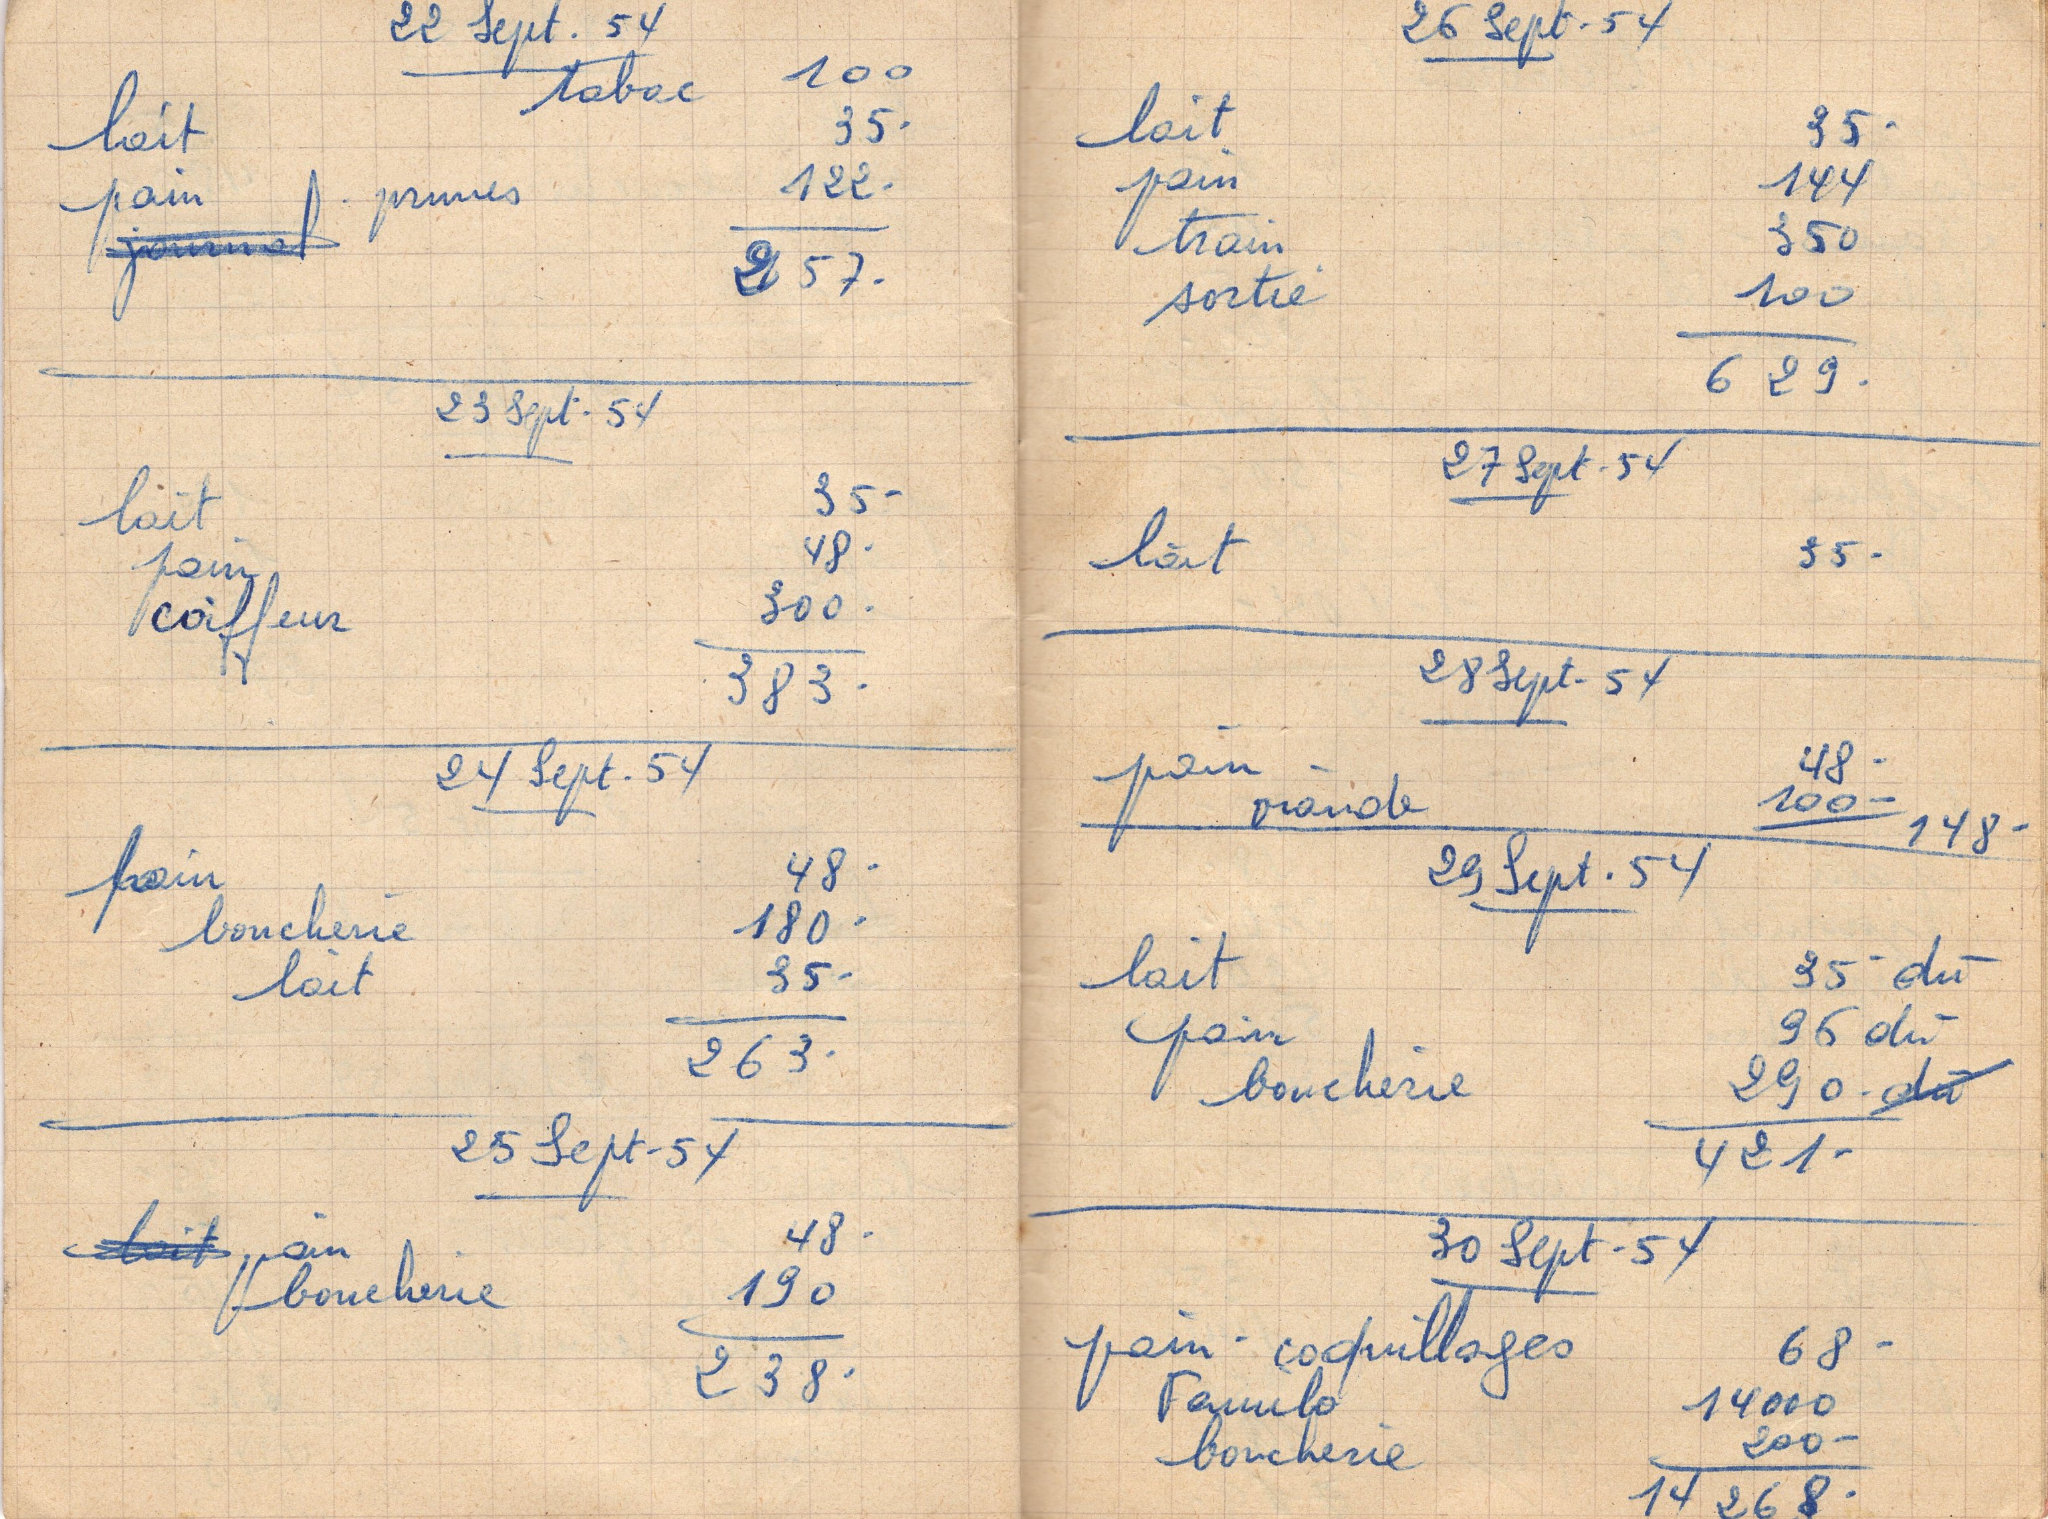 22 Sept. 54
tabac 100
lait 35.
pain - prunes 122.
journal
257.
23 Sept. 54
lait 35-
pain 48.
coiffeur 300.
383.
24 Sept. 54
pain 48.
boucherie 180.
lait 35-
263.
25 Sept-54
lait pain 48.
boucherie 190
238.
26 Sept-54
lait 35-
pain 144
train 350
sortie 100
629.
27 Sept-54
lait 35-
28 Sept-54
pain - 48-
viande 100-
148-
29 Sept. 54
lait 35- dû
pain 96 dû
boucherie 290. dû
421-
30 Sept-54
pain - coquillages 68-
Familo 14000
boucherie 200-
14268.